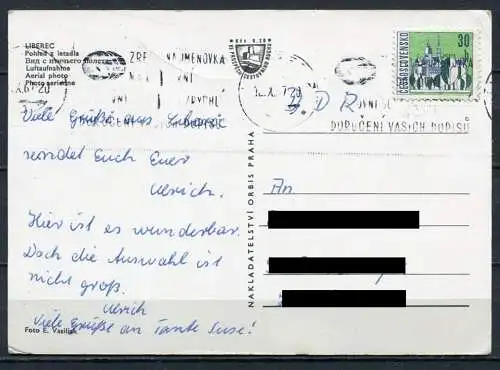 LIBEREC
Pohled z letadla
Вид с птичьего полета
Luftaufnahme
Aerial photo
Photo aérienne
ZŘE NA JMENOVKA
DORUČENÍ VAŠICH DOPISŮ
30 h
ČESKOSLOVENSKO
DDR
Viele Grüße aus Liberec
sendet Euch Euer
Ulrich.
Hier ist es wunderbar.
Doch die Auswahl ist
nicht groß.
Ulrich
Viele Grüße an Tante Suse!
An
NAKLADATELSTVÍ ORBIS PRAHA
Foto E. Vasiliak